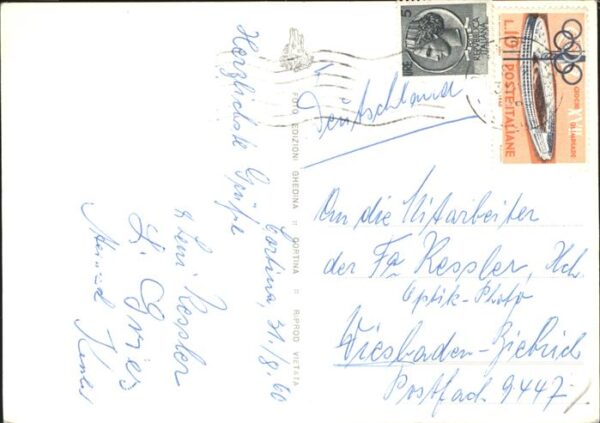 Cortina, 31/8.60
Herzlichste Grüße
Leni Kessler
FOTO EDIZIONI GHEDINA :: CORTINA :: RIPROD VIETATA
Deutschland
An die Mitarbeiter
der Fa Kessler,
Optik-Photo
Wiesbaden-Biebrich
Postfach 9447
5
LIRE
REPUBBLICA
ITALIANA
L.10
POSTE ITALIANE
GIOCHI
XVII
OLIMPIADE